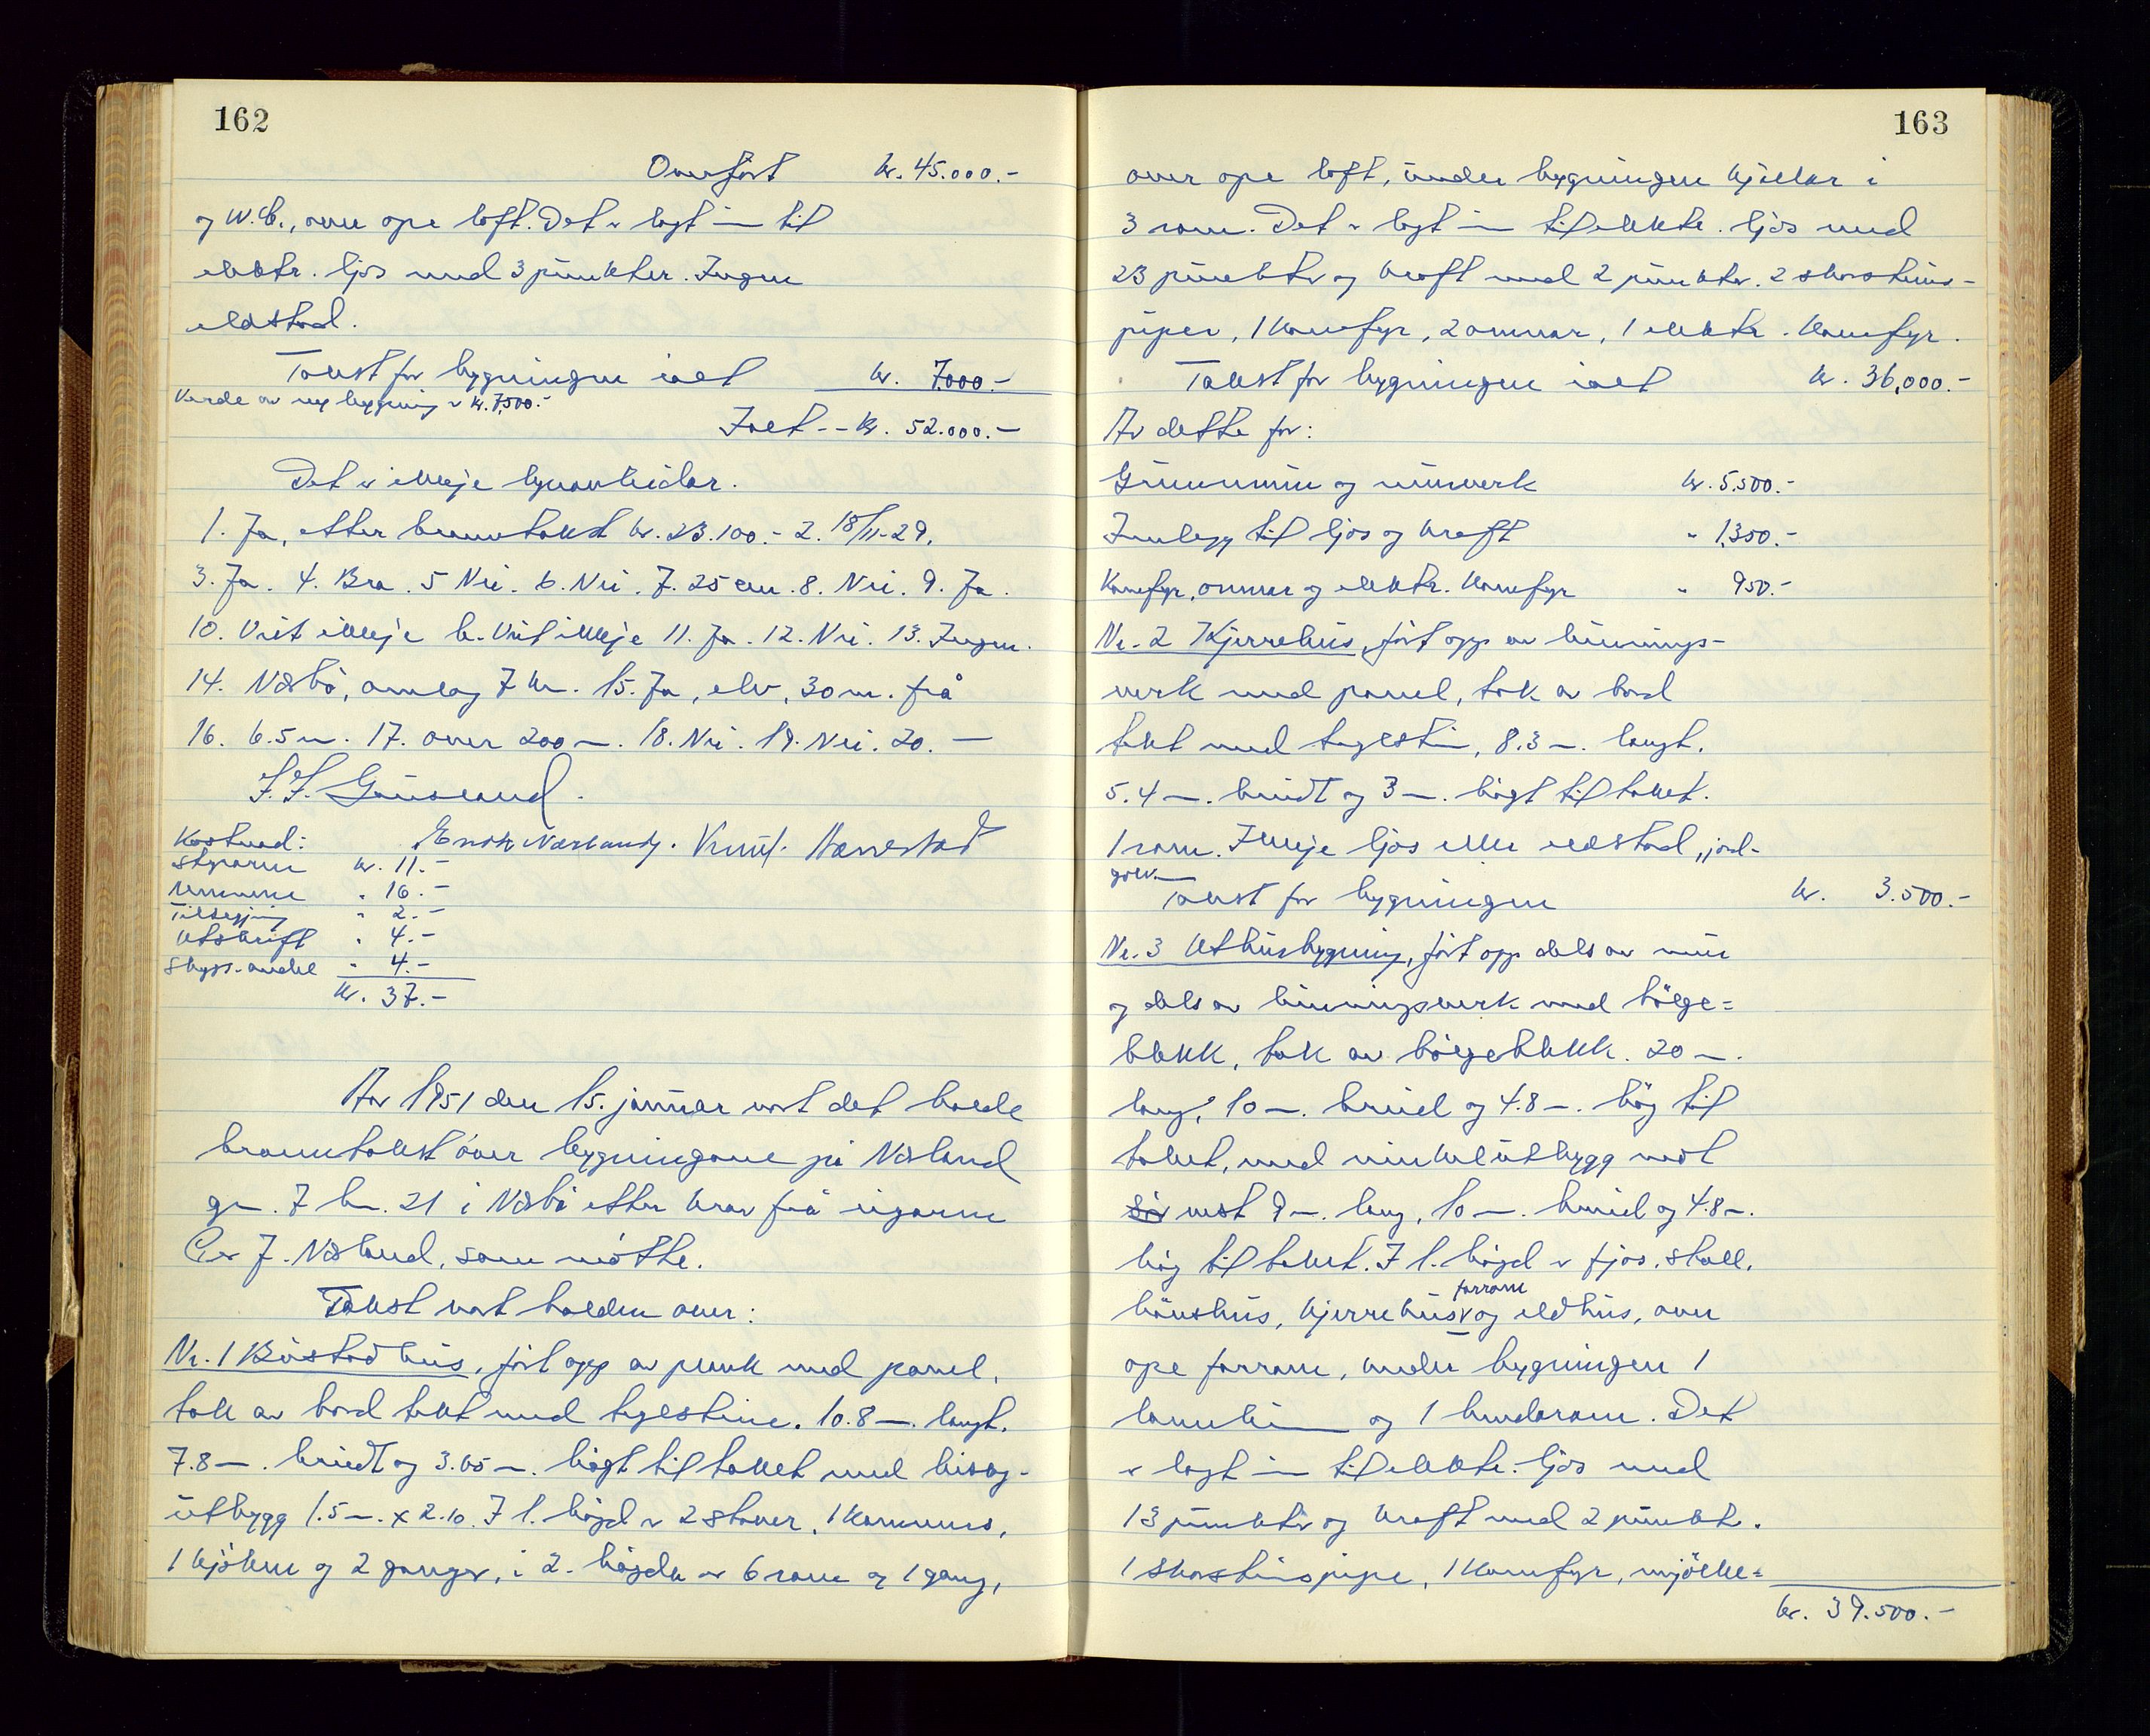 162
Overført kr. 45.000.-
og W.C., over ope loft. Det er lagt inn til
elektr. ljos med 3 punkter. Ingen
eldstad.
Takst for bygningen ialt kr. 7.000.-
Verde av ny bygning er kr. 7.500.-
Ialt -- kr. 52.000.-
Det er ikkje lynavleidar.
1. Ja, etter branntakst kr. 23.100.- 2. 18/11-29.
3. Ja. 4. Bra. 5 Nei. 6. Nei. 7. 25 cm. 8. Nei. 9. Ja.
10. Veit ikkje b. Veit ikkje 11. Ja. 12. Nei. 13. Ingen.
14. Nærbø, omlag 7 km. 15. Ja, elv, 30 m. frå
16. 6.5 m. 17. over 200 m. 18. Nei. 19. Nei. 20. —
Kostnad:
Styraren kr. 11.-
Nemnene " 16.-
Tilsegjing " 2.-
Utskrift " 4.-
Skyss-andel " 4.-
kr. 37.-
År 1951 den 15. januar vart det halde
branntakst over bygningane på Næland
gn. 7 bn. 21 i Nærbø etter krav frå eigaren
J. Næland, som møtte.
Takst vart halden over:
Nr. 1 Bustadhus, ført opp av plank med panel,
tak av bord tekt med teglstein. 10.8 m. langt,
7.8 m. breidt og 3.65 m. høgt til taket med bislag-
utbygg 1.5 m. x 2.10. I 1. høgd er 2 stover, 1 kammers,
1 kjøken og 2 ganger, i 2. høgda er 6 rom og 1 gang,
163
over ope loft, under bygningen kjellar i
3 rom. Det er lagt inn til elektr. ljos med
23 punkter og kraft med 2 punkter. 2 skorsteins-
piper, 1 komfyr, 2 omnar, 1 elektr. komfyr.
Takst for bygningen ialt kr. 36,000.-
Av dette for:
Grunnmur og murverk kr. 5.500.-
Innlegg til ljos og kraft " 1.350.-
Komfyr, omnar og elektr. komfyr " 950.-
Nr. 2 Kjerrehus, ført opp av bindings-
verk med panel, tak av bord
tekt med teglstein, 8.3 m. langt,
5.4 m. breidt og 3 m. høgt til taket.
1 rom. Ikkje ljos eller eldstad, jord-
golv.
Takst for bygningen kr. 3.500.-
Nr. 3 Uthusbygning, ført opp dels av mur
og dels av bindingsverk med bølge=
blekk, tak av bølgeblekk. 20 m.
lang, 10 m. breid og 4.8 m. høg til
taket, med vinkelutbygg mot
vest 9 m. lang, 10 m. breid og 4.8 m.
høg til taket. I 1. høgd er fjos, stall,
hønshus, kjerrehus, forrom og eldhus, over
ope forrom, under bygningen 1
og 1 rom. Det
er lagt inn til elektr. ljos med
13 punkter og kraft med 2 punkt.
1 skorsteinspipe, 1 komfyr, mjølke=
kr. 39.500.-